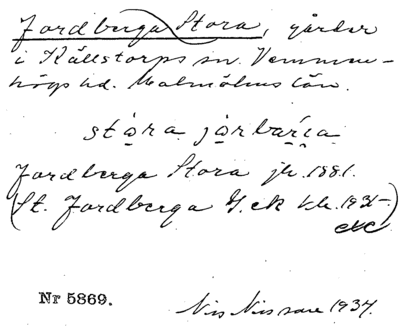 Jordberga Stora, gårdar
i Källstorps sn. Vemmen-
högs hd. Malmöhus län.
stǫra jǫrbaría
Jordberga Stora jb. 1881.
(St. Jordberga G. ek kb. 1935-)
etc
Nr 5869.
Nils Nilsson 1937.